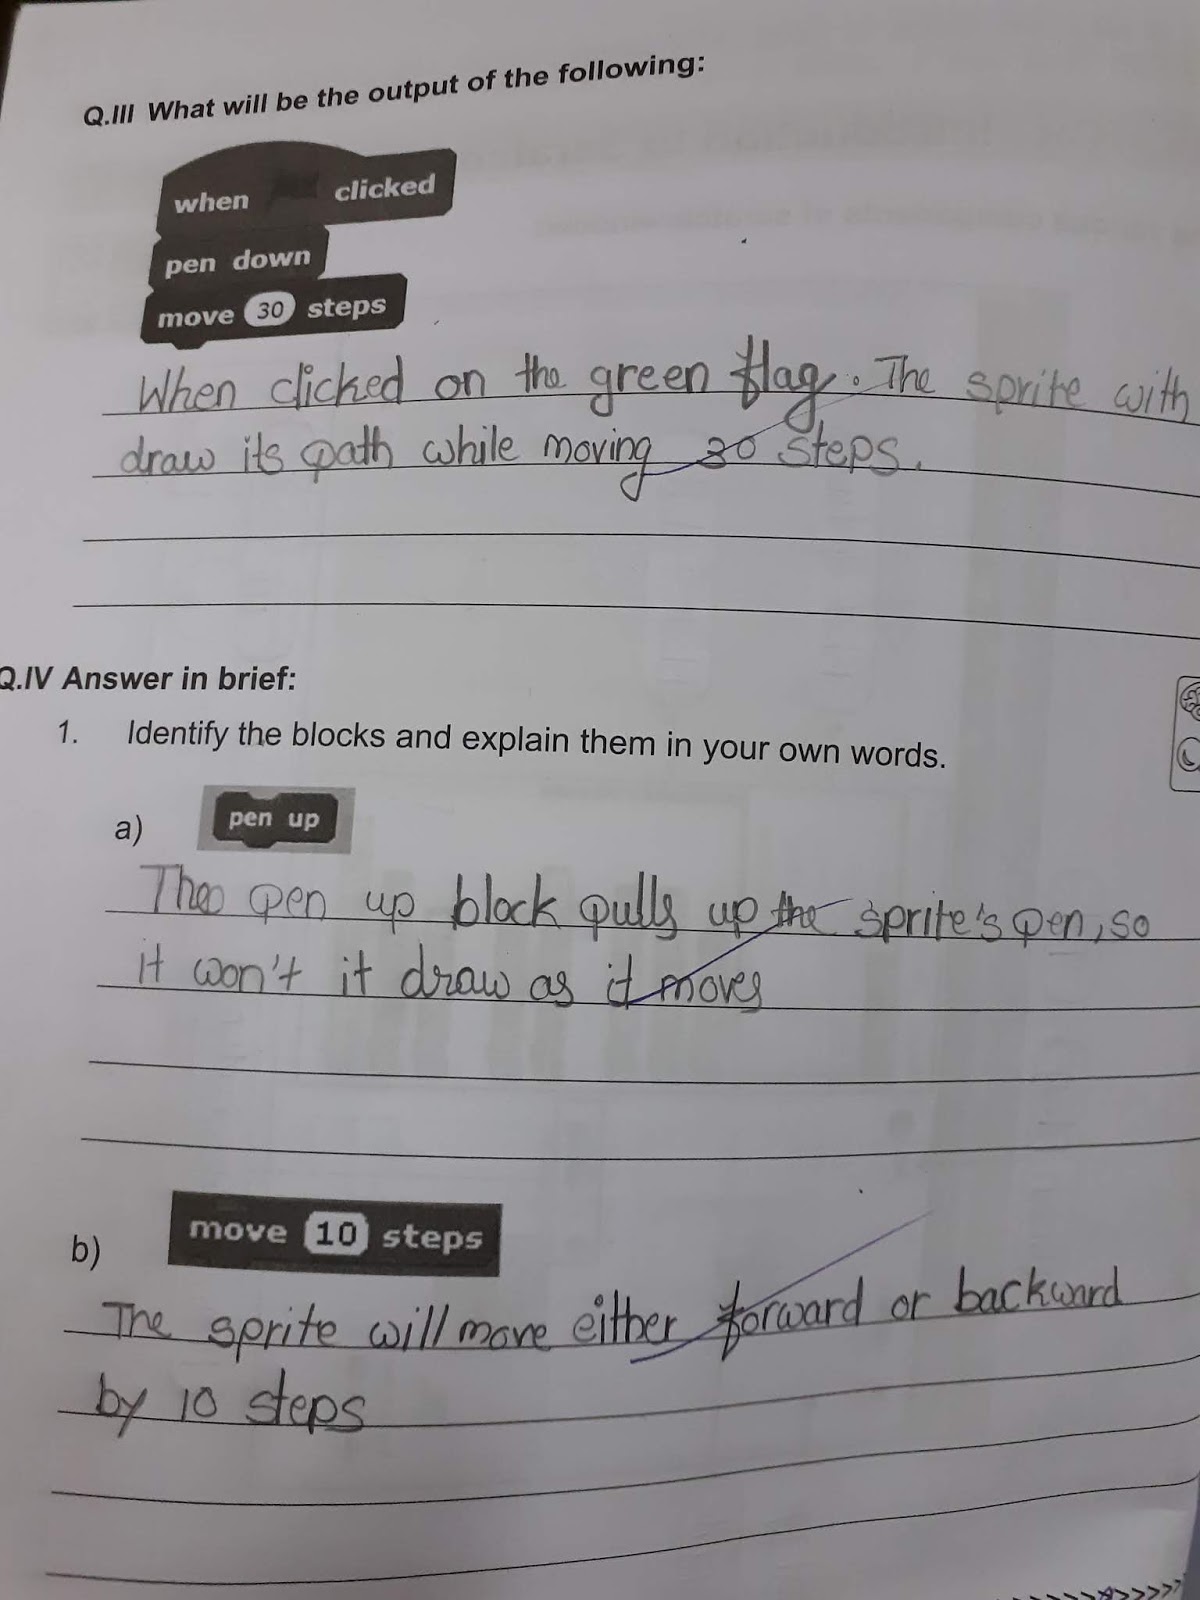 Q.III What will be the output of the following:
when clicked
pen down
move 30 steps
When clicked on the green flag. The sprite with
draw its path while moving 30 steps.
Q.IV Answer in brief:
1. Identify the blocks and explain them in your own words.
a) pen up
The pen up block pulls up the sprite's pen, so
it won't it draw as it moves
b) move 10 steps
The sprite will move either forward or backward
by 10 steps